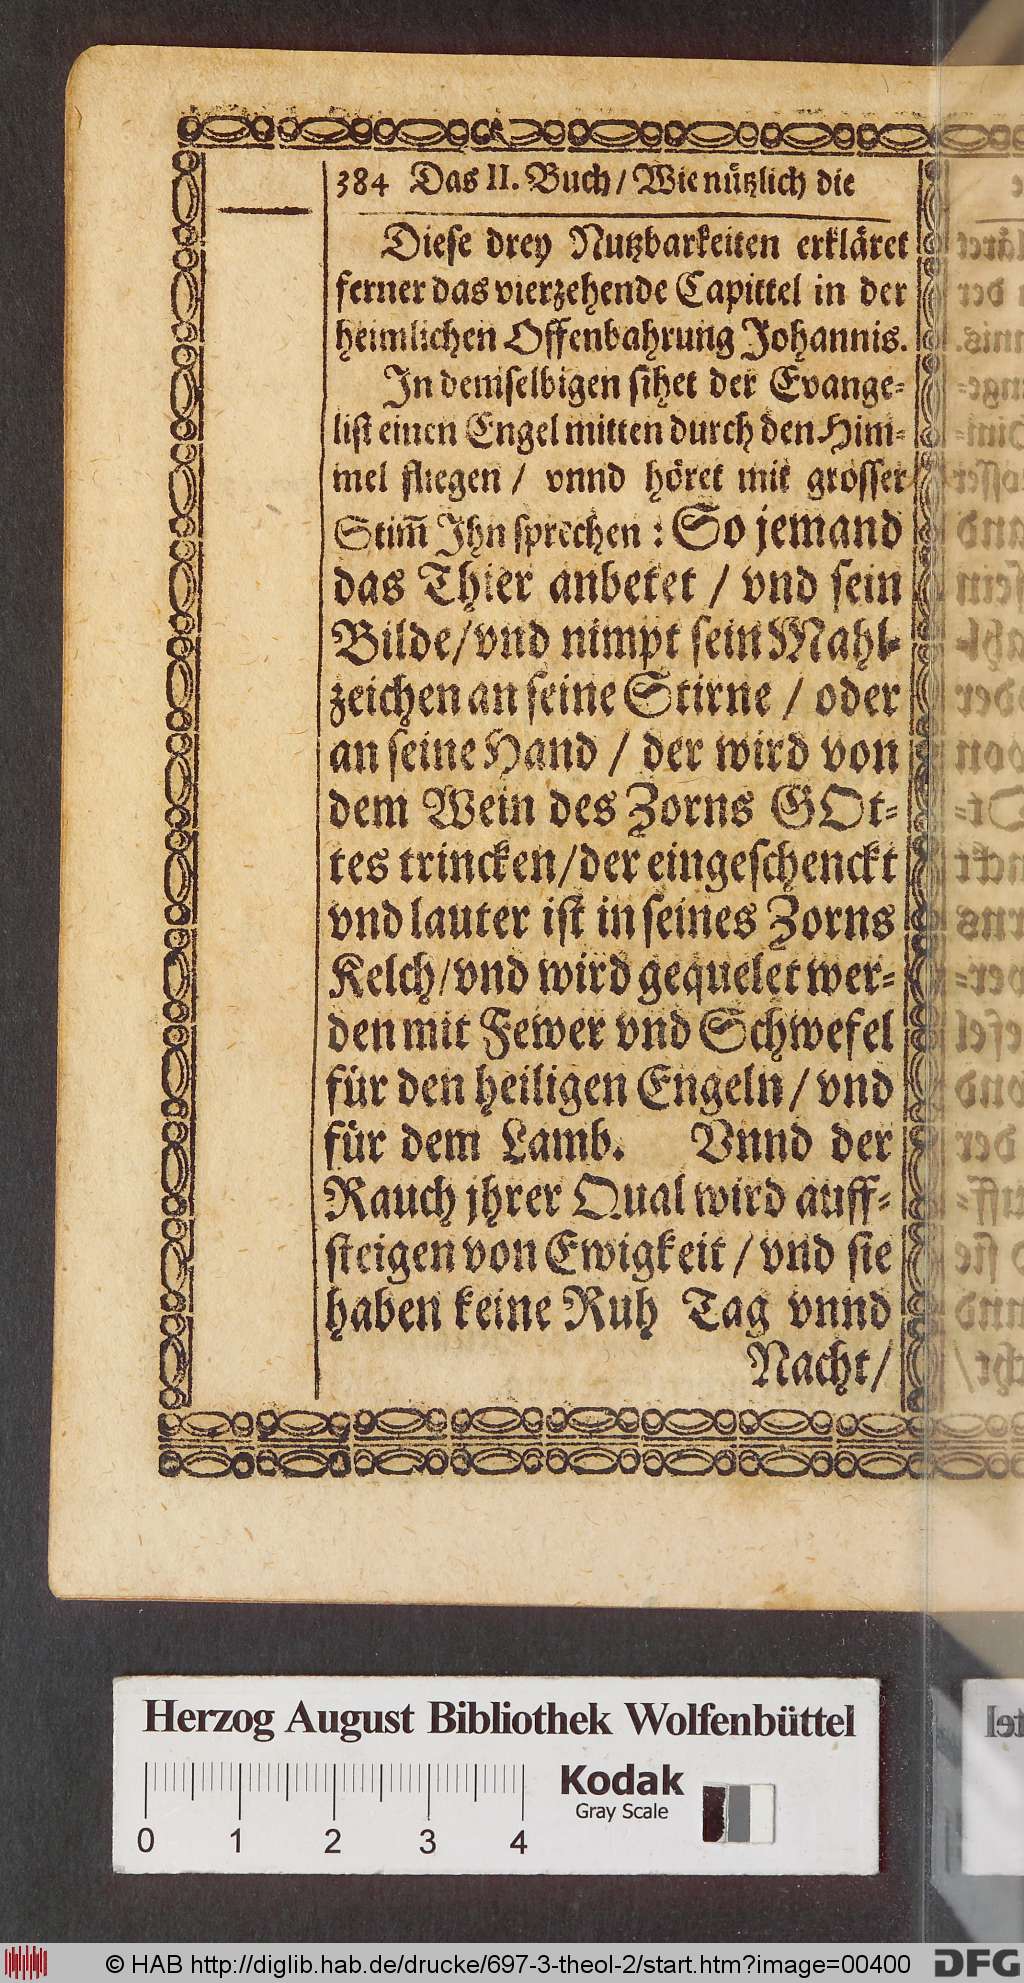 384 Das II. Buch / Wie nützlich die
Diese drey Nutzbarkeiten erkläret
ferner das vierzehende Capittel in der
heimlichen Offenbahrung Johannis.
In demselbigen sihet der Evange-
list einen Engel mitten durch den Him-
mel fliegen / vnnd höret mit grosser
Stim̃ Ihn sprechen : So jemand
das Thier anbetet / vnd sein
Bilde / vnd nimpt sein Mahl-
zeichen an seine Stirne / oder
an seine Hand / der wird von
dem Wein des Zorns GOt-
tes trincken / der eingeschenckt
vnd lauter ist in seines Zorns
Kelch / vnd wird gequelet wer-
den mit Fewer vnd Schwefel
für den heiligen Engeln / vnd
für dem Lamb. Vnnd der
Rauch jhrer Qual wird auff-
steigen von Ewigkeit / vnd sie
haben keine Ruh Tag vnnd
Nacht /
Herzog August Bibliothek Wolfenbüttel
Kodak
Gray Scale
0 1 2 3 4
© HAB http://diglib.hab.de/drucke/697-3-theol-2/start.htm?image=00400
DFG